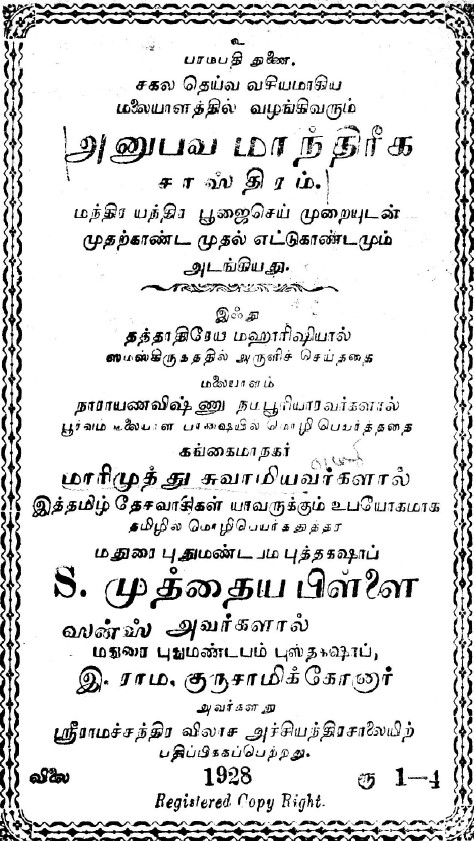 உ
பராபதி துணை.
சகல தெய்வ வசியமாகிய
மலையாளத்தில் வழங்கிவரும்
அனுபவ மாந்திரீக
சாஸ்திரம்.
மந்திர யந்திர பூஜைசெய் முறையுடன்
முதற்காண்ட முதல் எட்டுகாண்டமும்
அடங்கியது.
இஃது
தத்தாதிரேய மஹாரிஷியால்
ஸமஸ்கிருதத்தில் அருளிச் செய்ததை
மலையாளம்
நாராயணவிஷ்ணு நம்பூரியாரவர்களால்
பூர்வம் மலையாள பாஷையில் மொழிபெயர்த்ததை
கங்கைமாநகர்
மாரிமுத்து சுவாமியவர்களால்
இத்தமிழ் தேசவாசிகள் யாவருக்கும் உபயோகமாக
தமிழில் மொழிபெயர்த்துத்தர
மதுரை புதுமண்டபம் புத்தகஷாப்
S. முத்தைய பிள்ளை
ஸன்ஸ் அவர்களால்
மதுரை புதுமண்டபம் புஸ்தகஷாப்,
இ. ராம. குருசாமிக்கோனார்
அவர்களது
ஸ்ரீராமச்சந்திர விலாச அச்சியந்திரசாலையிற்
பதிப்பிக்கப்பெற்றது.
விலை 1928 ரூ 1-4
Registered Copy Right.